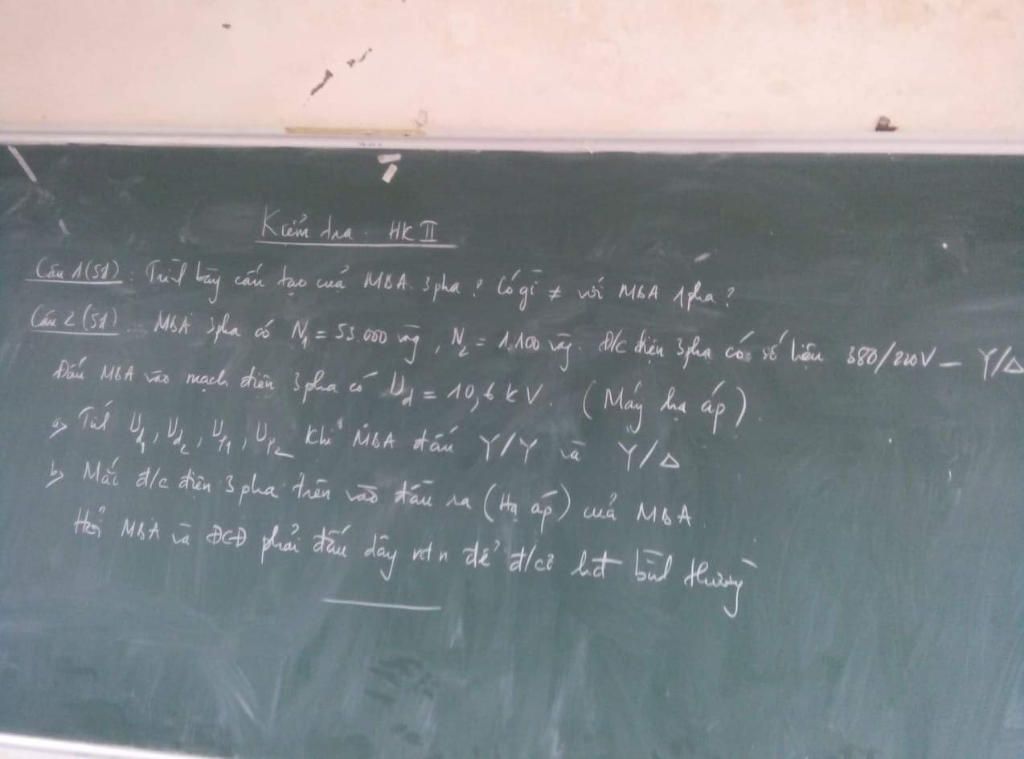 Kiểm tra HK II
Câu 1 (5đ): Trình bày cấu tạo của MBA 3pha? Có gì ≠ với MBA 1pha?
Câu 2 (5đ) MBA 3pha có N₁ = 53.000 vg, N₂ = 1.100 vg. Đ/c điện 3pha có số liệu 380/220V – Y/Δ
Đấu MBA vào mạch điện 3pha có Ud = 10,6 kV. (Máy hạ áp).
a> Tính Ud1, Ud2, Up1, Up2 khi MBA đấu Y/Y và Y/Δ
b> Mắc đ/c điện 3pha trên vào đầu ra (Hạ áp) của MBA.
Hỏi MBA và ĐCĐ phải đấu dây ntn để đ/cơ hđ bình thường